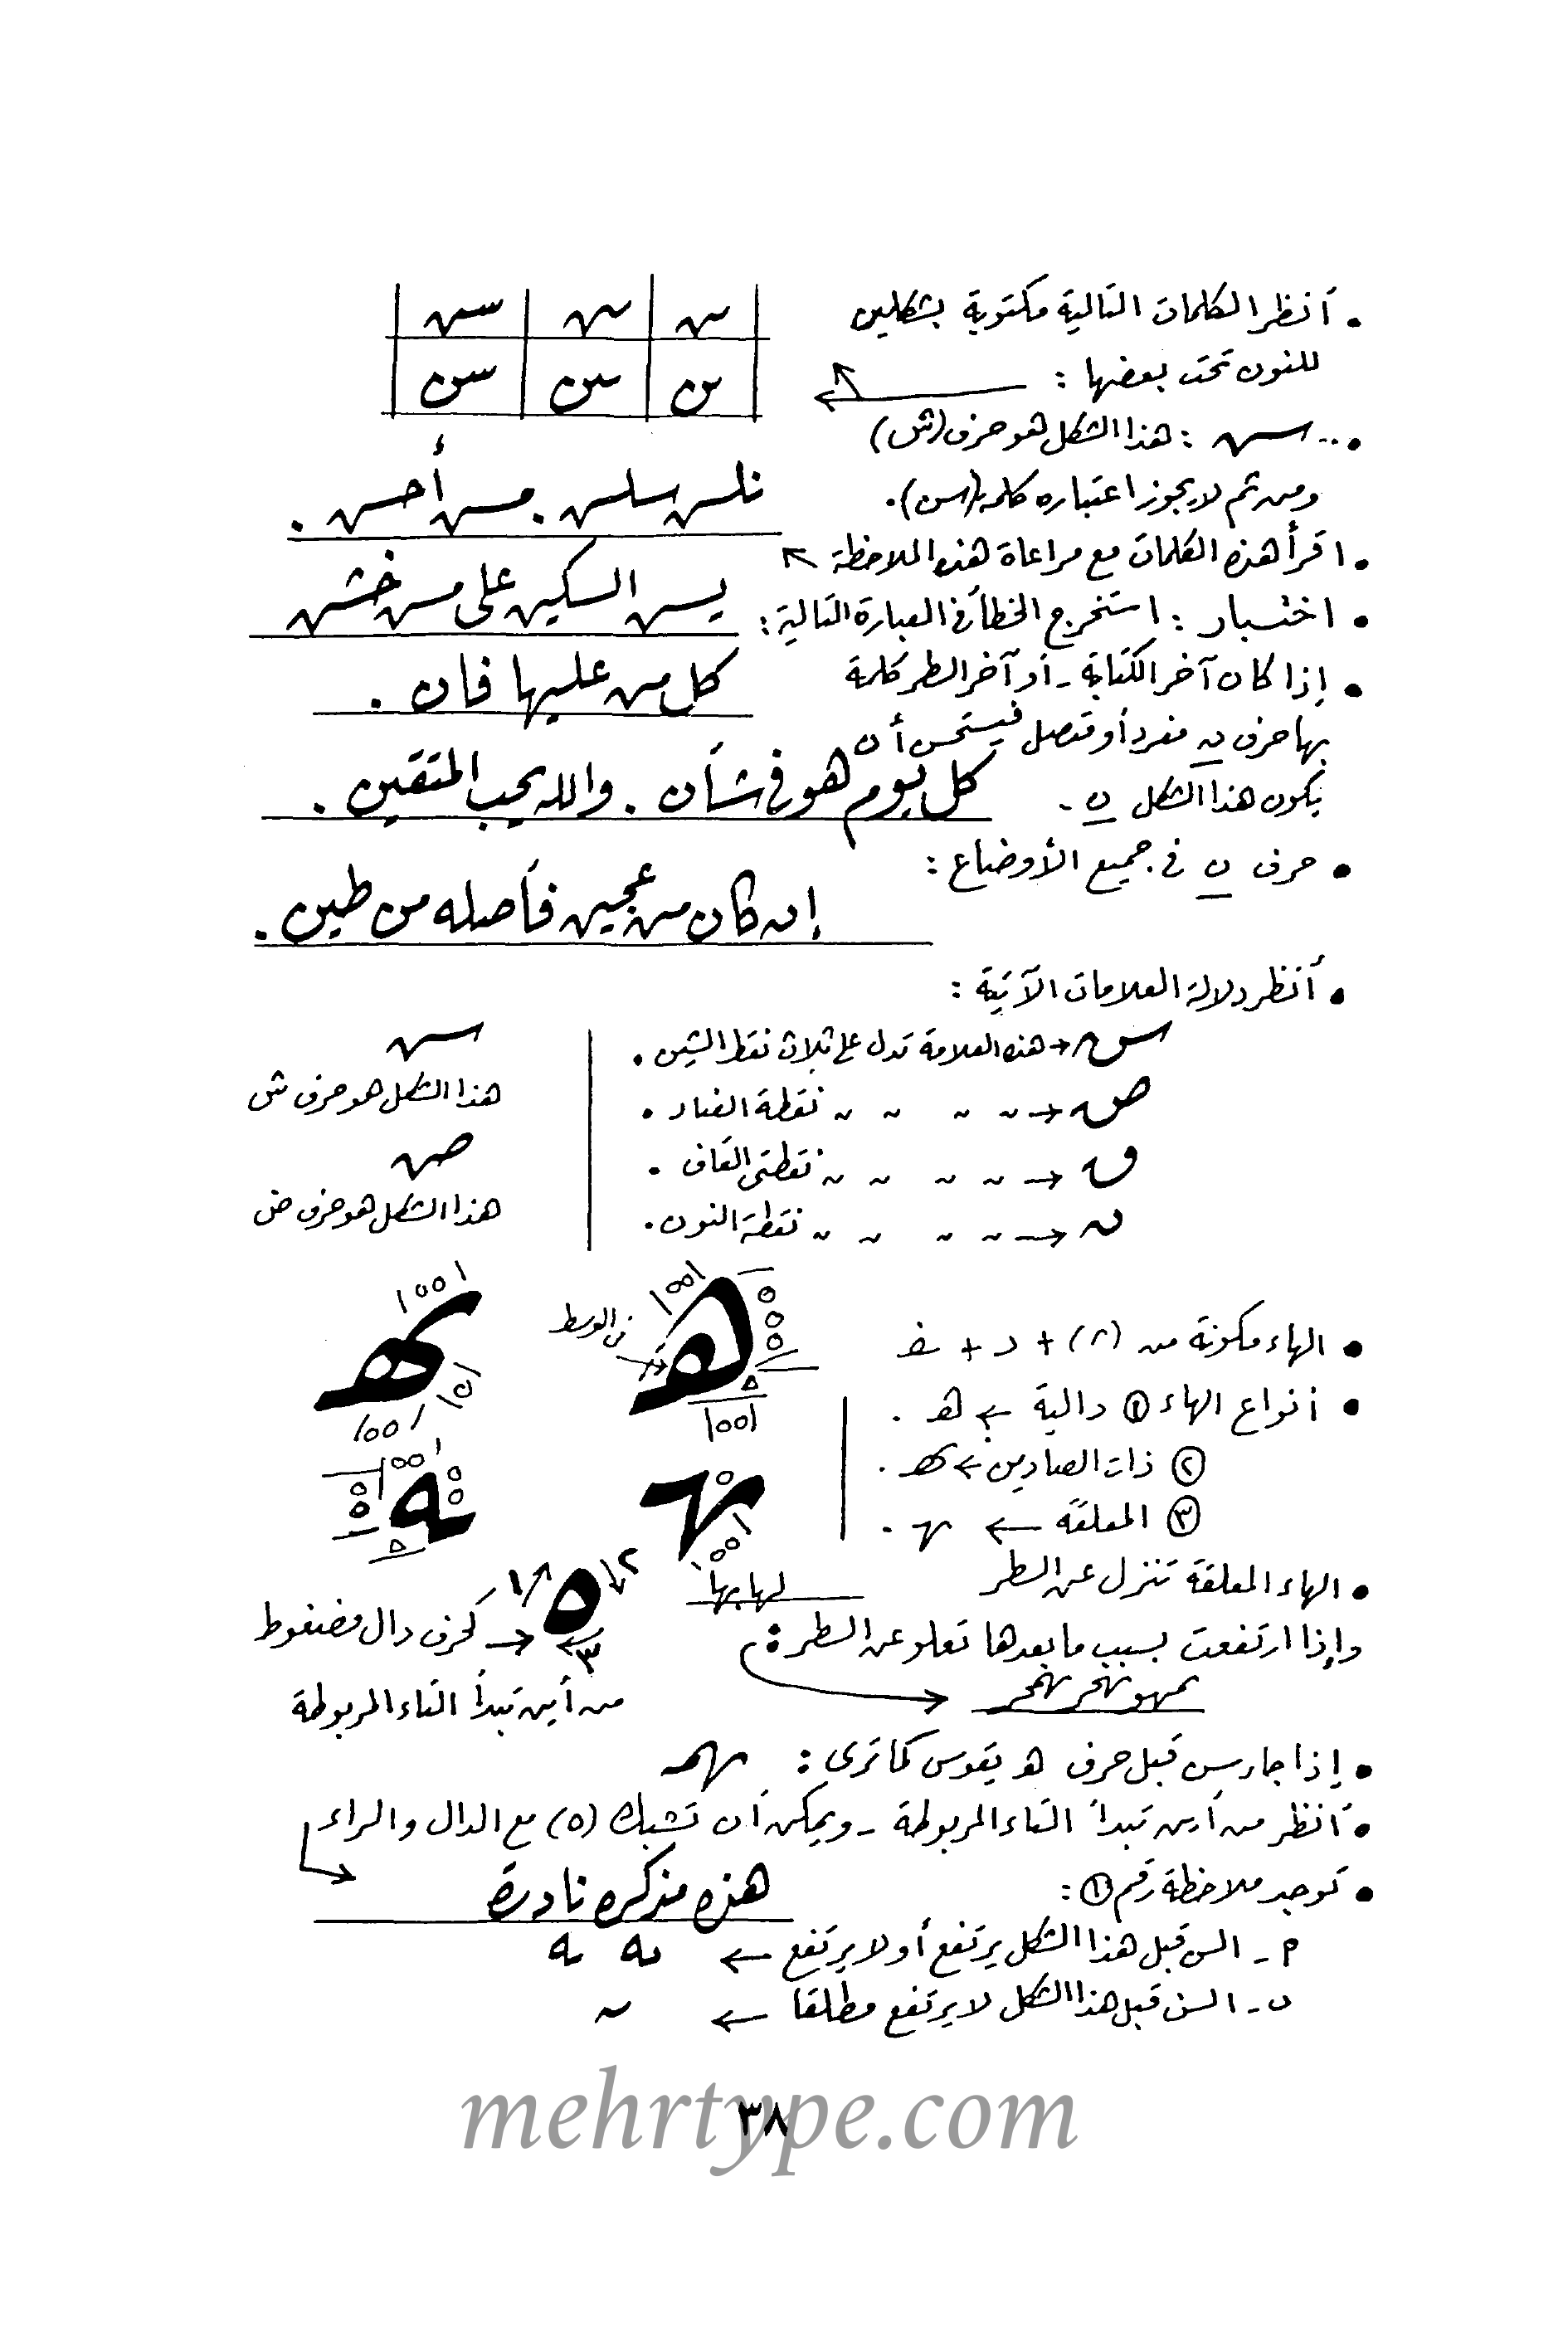 . أنظر الكلمات التالية مكتوبة بشكلين
للنون تحت بعضها :
س س سس
س سن سن
. .. س : هذا الشكل هو حرف (ش)
ومن ثم لا يجوز اعتباره كلمة (سن).
. من أحسن .
. اقرأ هذه الكلمات مع مراعاة هذه الملاحظة
. اختبار : استخرج الخطأ في العبارة التالية :
يسن السكين على مسن خشن
. إذا كان آخر الكتابة - أو آخر السطر كلمة
كل من عليها فان .
بها حرف ن مفرد أو متصل فيستحسن أن
يكون هذا الشكل ن -
كل يوم هو في شأن . والله يحب المتقين .
. حرف ن في جميع الأوضاع :
إن كان من عجين فأصله من طين .
. أنظر دلالة العلامات الآتية :
س ← هذه العلامة تدل على ثلاث نقط الشين .
ص ← " " " " نقطة الضاد .
ق ← " " " " نقطتي القاف .
ن ← " " " " نقطة النون .
س
هذا الشكل هو حرف ش
ص
هذا الشكل هو حرف ض
. الهاء مكونة من (٨) + د + صـ
في الوسط
. أنواع الهاء ١ دالية ← هـ .
٢ ذات الصادين ← هـ .
٣ المعلقة ← ـهـ .
. الهاء المعلقة تنزل عن السطر
لها بها
وإذا ارتفعت بسبب ما بعدها تعلو عن السطر :
١ ٢ ٣
ه ← كحرف دال مضغوط
من أين تبدأ التاء المربوطة
. إذا جاء سن قبل حرف هـ يقوس كما ترى :
. أنظر من أين تبدأ التاء المربوطة - ويمكن أن تشبك (ه) مع الدال والراء
هذه مذكره نادرة
. توجد ملاحظة رقم ١ :
أ - السن قبل هذا الشكل يرتفع أو لا يرتفع ← ـه ـه
ب - السن قبل هذا الشكل لا يرتفع مطلقا ←
٣٨
mehrtype.com